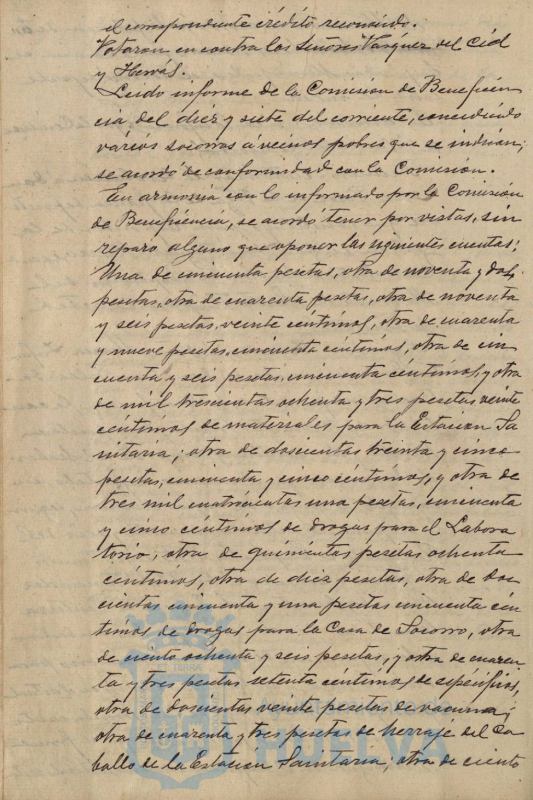 el correspondiente crédito reconocido.
Votaron en contra los Señores Vazquez del Cid
y Hervás.
Leido informe de la Comision de Beneficen-
cia del diez y siete del corriente, concediendo
varios socorros á vecinos pobres que se indican;
se acordó de conformidad con la Comisión.
En armonia con lo informado por la Comisión
de Beneficencia, se acordó tener por vistas, sin
reparo alguno que oponer las siguientes cuentas:
Una de cincuenta pesetas, otra de noventa y dos
pesetas, otra de cuarenta pesetas, otra de noventa
y seis pesetas, veinte céntimos, otra de cuarenta
y nueve pesetas, cincuenta céntimos, otra de cin
cuenta y seis pesetas, cincuenta céntimos, y otra
de mil trescientas ochenta y tres pesetas veinte
céntimos de materiales para la Estación Sa
nitaria; otra de doscientas treinta y cinco
pesetas, cincuenta y cinco céntimos, y otra de
tres mil cuatrocientas una pesetas, cincuenta
y cinco céntimos de drogas para el Labora
torio; otra de quinientas pesetas ochenta
céntimos, otra de diez pesetas, otra de dos-
cientas cincuenta y una pesetas cincuenta cén
timos de drogas para la Casa de Socorro, otra
de ciento ochenta y seis pesetas, y otra de cuaren-
ta y tres pesetas setenta céntimos de especificos,
otra de doscientas veinte pesetas de vacuna;
otra de cuarenta y tres pesetas de herraje del Ca
ballo de la Estación Sanitaria; otra de ciento
HUELVA